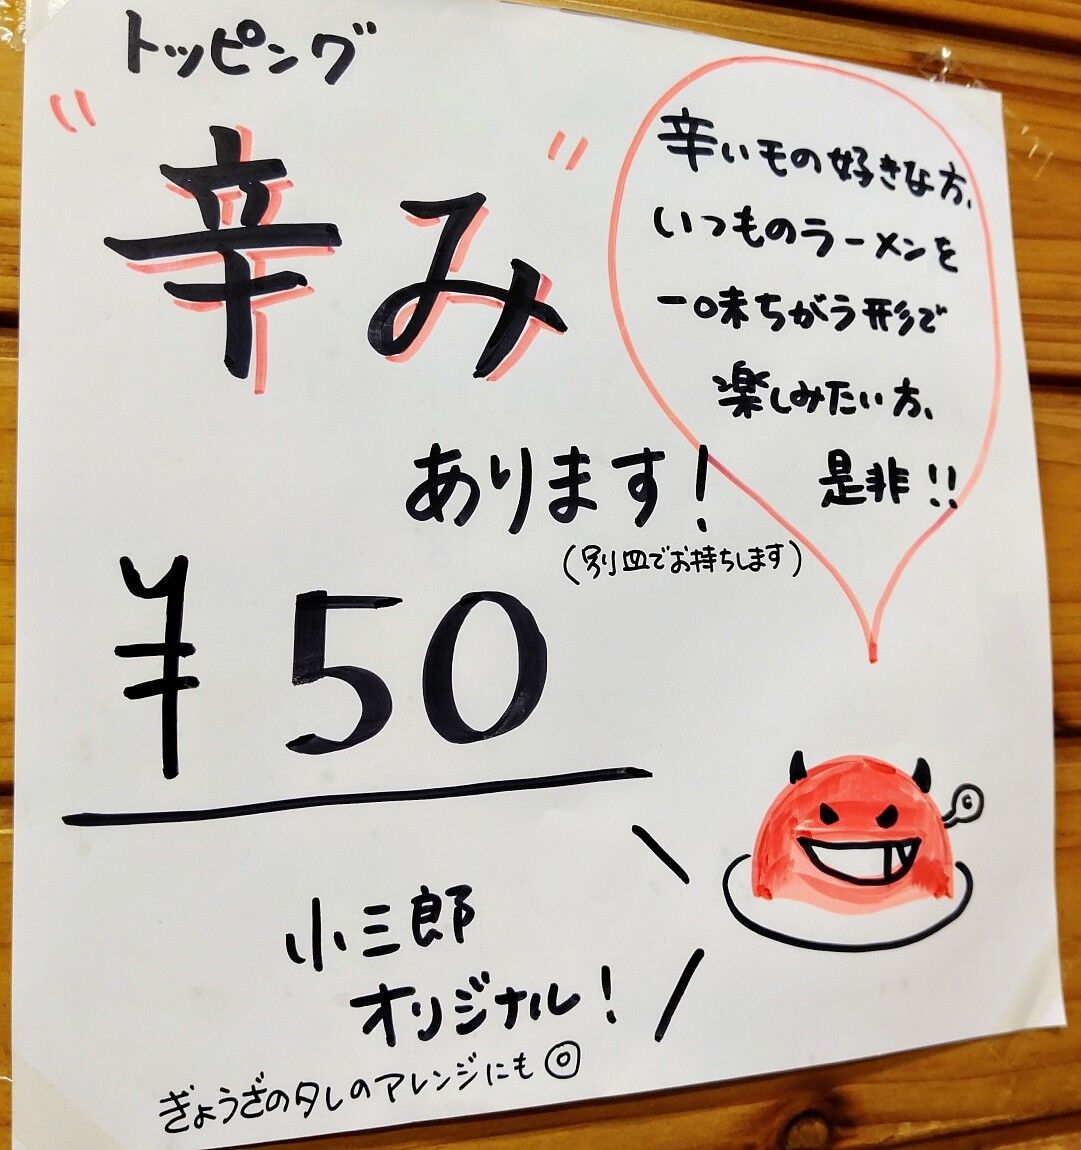 トッピング
"辛み"
あります！
（別皿でお持ちします）
¥50
辛いもの好きな方、
いつものラーメンを
一味ちがう形で
楽しみたい方、
是非!!
小三郎
オリジナル！
ぎょうざのタレのアレンジにも◎